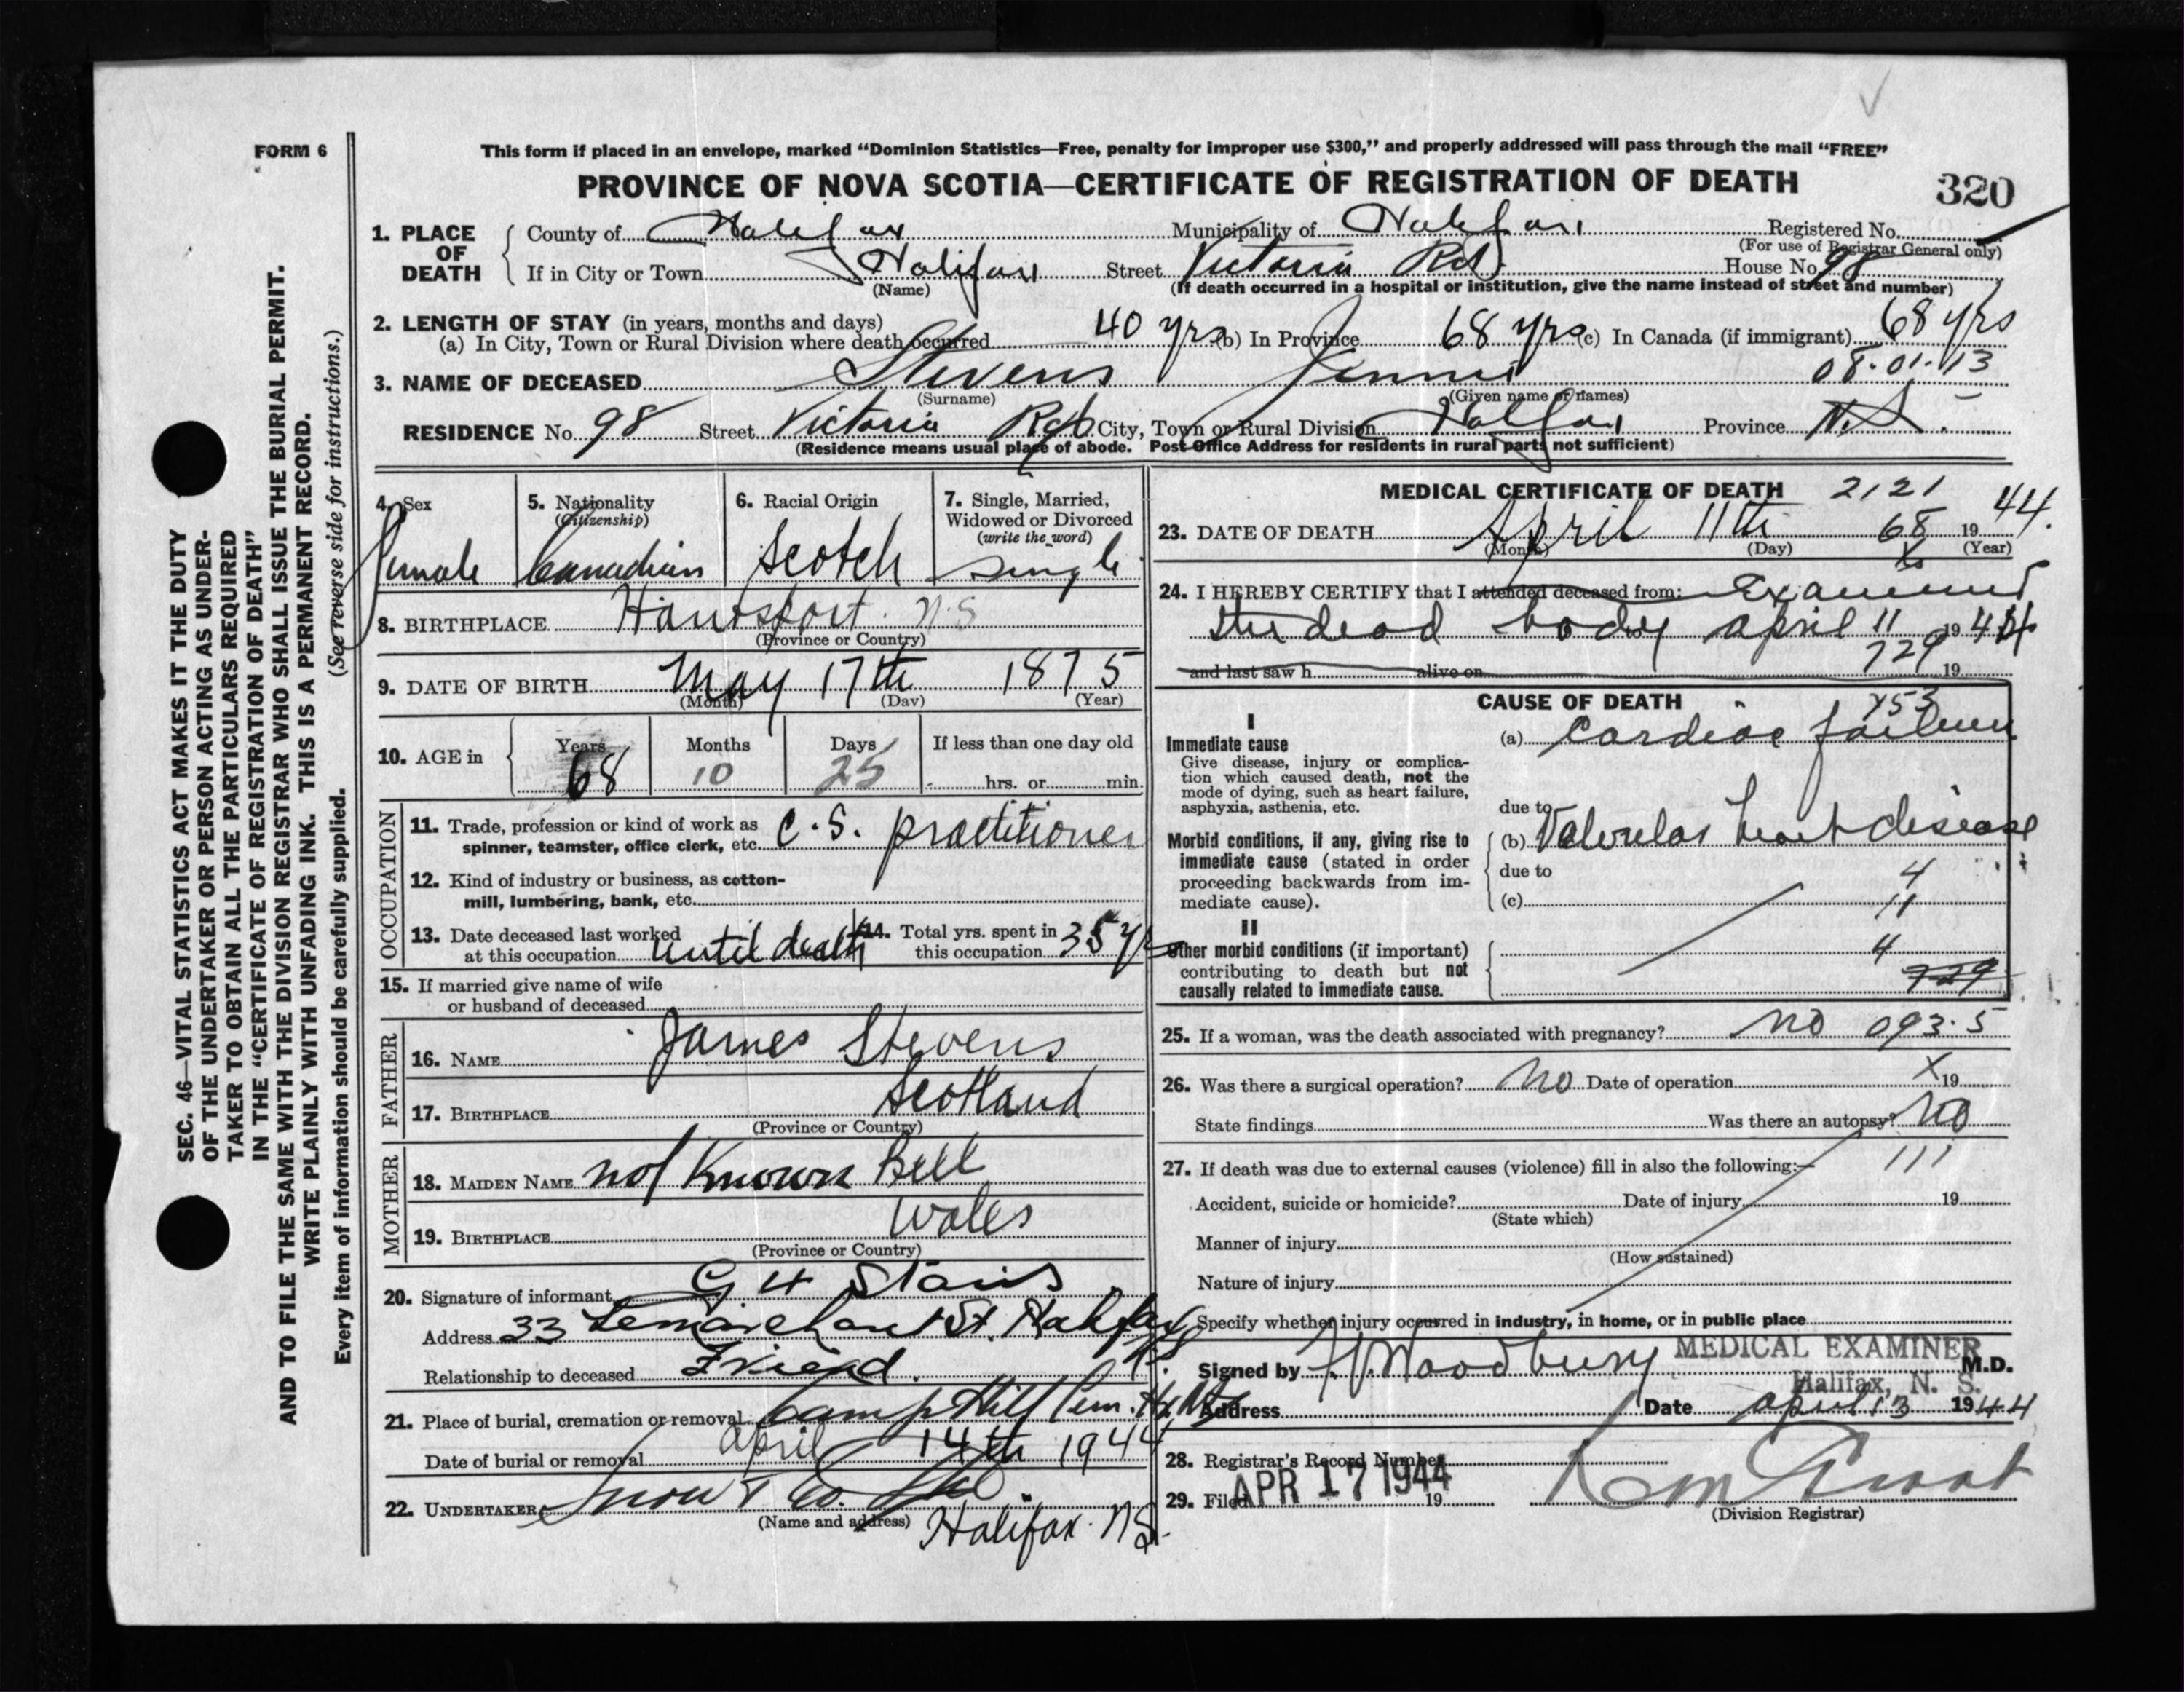 FORM 6
This form if placed in an envelope, marked “Dominion Statistics—Free, penalty for improper use $300,” and properly addressed will pass through the mail “FREE”
PROVINCE OF NOVA SCOTIA—CERTIFICATE OF REGISTRATION OF DEATH
320
1. PLACE OF DEATH
County of Halifax Municipality of Halifax Registered No.
(For use of Registrar General only)
If in City or Town Halifax Street Victoria Rd. House No. 98
(Name) (If death occurred in a hospital or institution, give the name instead of street and number)
2. LENGTH OF STAY (in years, months and days)
(a) In City, Town or Rural Division where death occurred 40 yrs (b) In Province 68 yrs (c) In Canada (if immigrant) 68 yrs
08.01.13
3. NAME OF DECEASED Stevens Jennie
(Surname) (Given name or names)
RESIDENCE No. 98 Street Victoria Rd. City, Town or Rural Division Halifax Province N.S.
(Residence means usual place of abode. Post Office Address for residents in rural parts not sufficient)
4. Sex
female
5. Nationality
(Citizenship)
Canadian
6. Racial Origin
Scotch
7. Single, Married,
Widowed or Divorced
(write the word)
Single
8. BIRTHPLACE Hantsport N.S
(Province or Country)
9. DATE OF BIRTH May 17th 1875
(Month) (Day) (Year)
10. AGE in
Years Months Days If less than one day old
68 10 25 hrs. or min.
OCCUPATION
11. Trade, profession or kind of work as
spinner, teamster, office clerk, etc. C.S. practitioner
12. Kind of industry or business, as cotton-
mill, lumbering, bank, etc.
13. Date deceased last worked
at this occupation until death
14. Total yrs. spent in
this occupation 35 yrs
15. If married give name of wife
or husband of deceased
FATHER
16. NAME James Stevens
17. BIRTHPLACE Scotland
(Province or Country)
MOTHER
18. MAIDEN NAME not Known Bell
19. BIRTHPLACE Wales
(Province or Country)
20. Signature of informant G H Stairs
Address 33 Lemarchant St. Halifax N.S.
Relationship to deceased Friend.
21. Place of burial, cremation or removal Camp Hill Cem. Hx NS
Date of burial or removal April 14th 1944
22. UNDERTAKER Snow & Co. Ltd
(Name and address) Halifax. N.S.
MEDICAL CERTIFICATE OF DEATH 2121
23. DATE OF DEATH April 11th 68 1944.
(Month) (Day) (Year)
24. I HEREBY CERTIFY that I attended deceased from: Examined
the dead body April 11 1944
729
and last saw h alive on 19
CAUSE OF DEATH
453
I
Immediate cause
Give disease, injury or complica-
tion which caused death, not the
mode of dying, such as heart failure,
asphyxia, asthenia, etc.
(a) Cardiac failure
due to
Morbid conditions, if any, giving rise to
immediate cause (stated in order
proceeding backwards from im-
mediate cause).
(b) Valvular heart disease
due to 4
(c) 11
II
Other morbid conditions (if important)
contributing to death but not
causally related to immediate cause.
4
729
25. If a woman, was the death associated with pregnancy? no 093.5
26. Was there a surgical operation? No Date of operation X 19
State findings Was there an autopsy? No
27. If death was due to external causes (violence) fill in also the following:— 111
Accident, suicide or homicide? Date of injury 19
(State which)
Manner of injury
(How sustained)
Nature of injury
Specify whether injury occurred in industry, in home, or in public place
MEDICAL EXAMINER
Signed by Woodbury M.D.
Halifax, N. S.
Address Date April 13 1944
28. Registrar's Record Number
29. Filed APR 17 1944 19
(Division Registrar)
SEC. 46—VITAL STATISTICS ACT MAKES IT THE DUTY
OF THE UNDERTAKER OR PERSON ACTING AS UNDER-
TAKER TO OBTAIN ALL THE PARTICULARS REQUIRED
IN THE “CERTIFICATE OF REGISTRATION OF DEATH”
AND TO FILE THE SAME WITH THE DIVISION REGISTRAR WHO SHALL ISSUE THE BURIAL PERMIT.
WRITE PLAINLY WITH UNFADING INK. THIS IS A PERMANENT RECORD.
Every item of information should be carefully supplied. (See reverse side for instructions.)